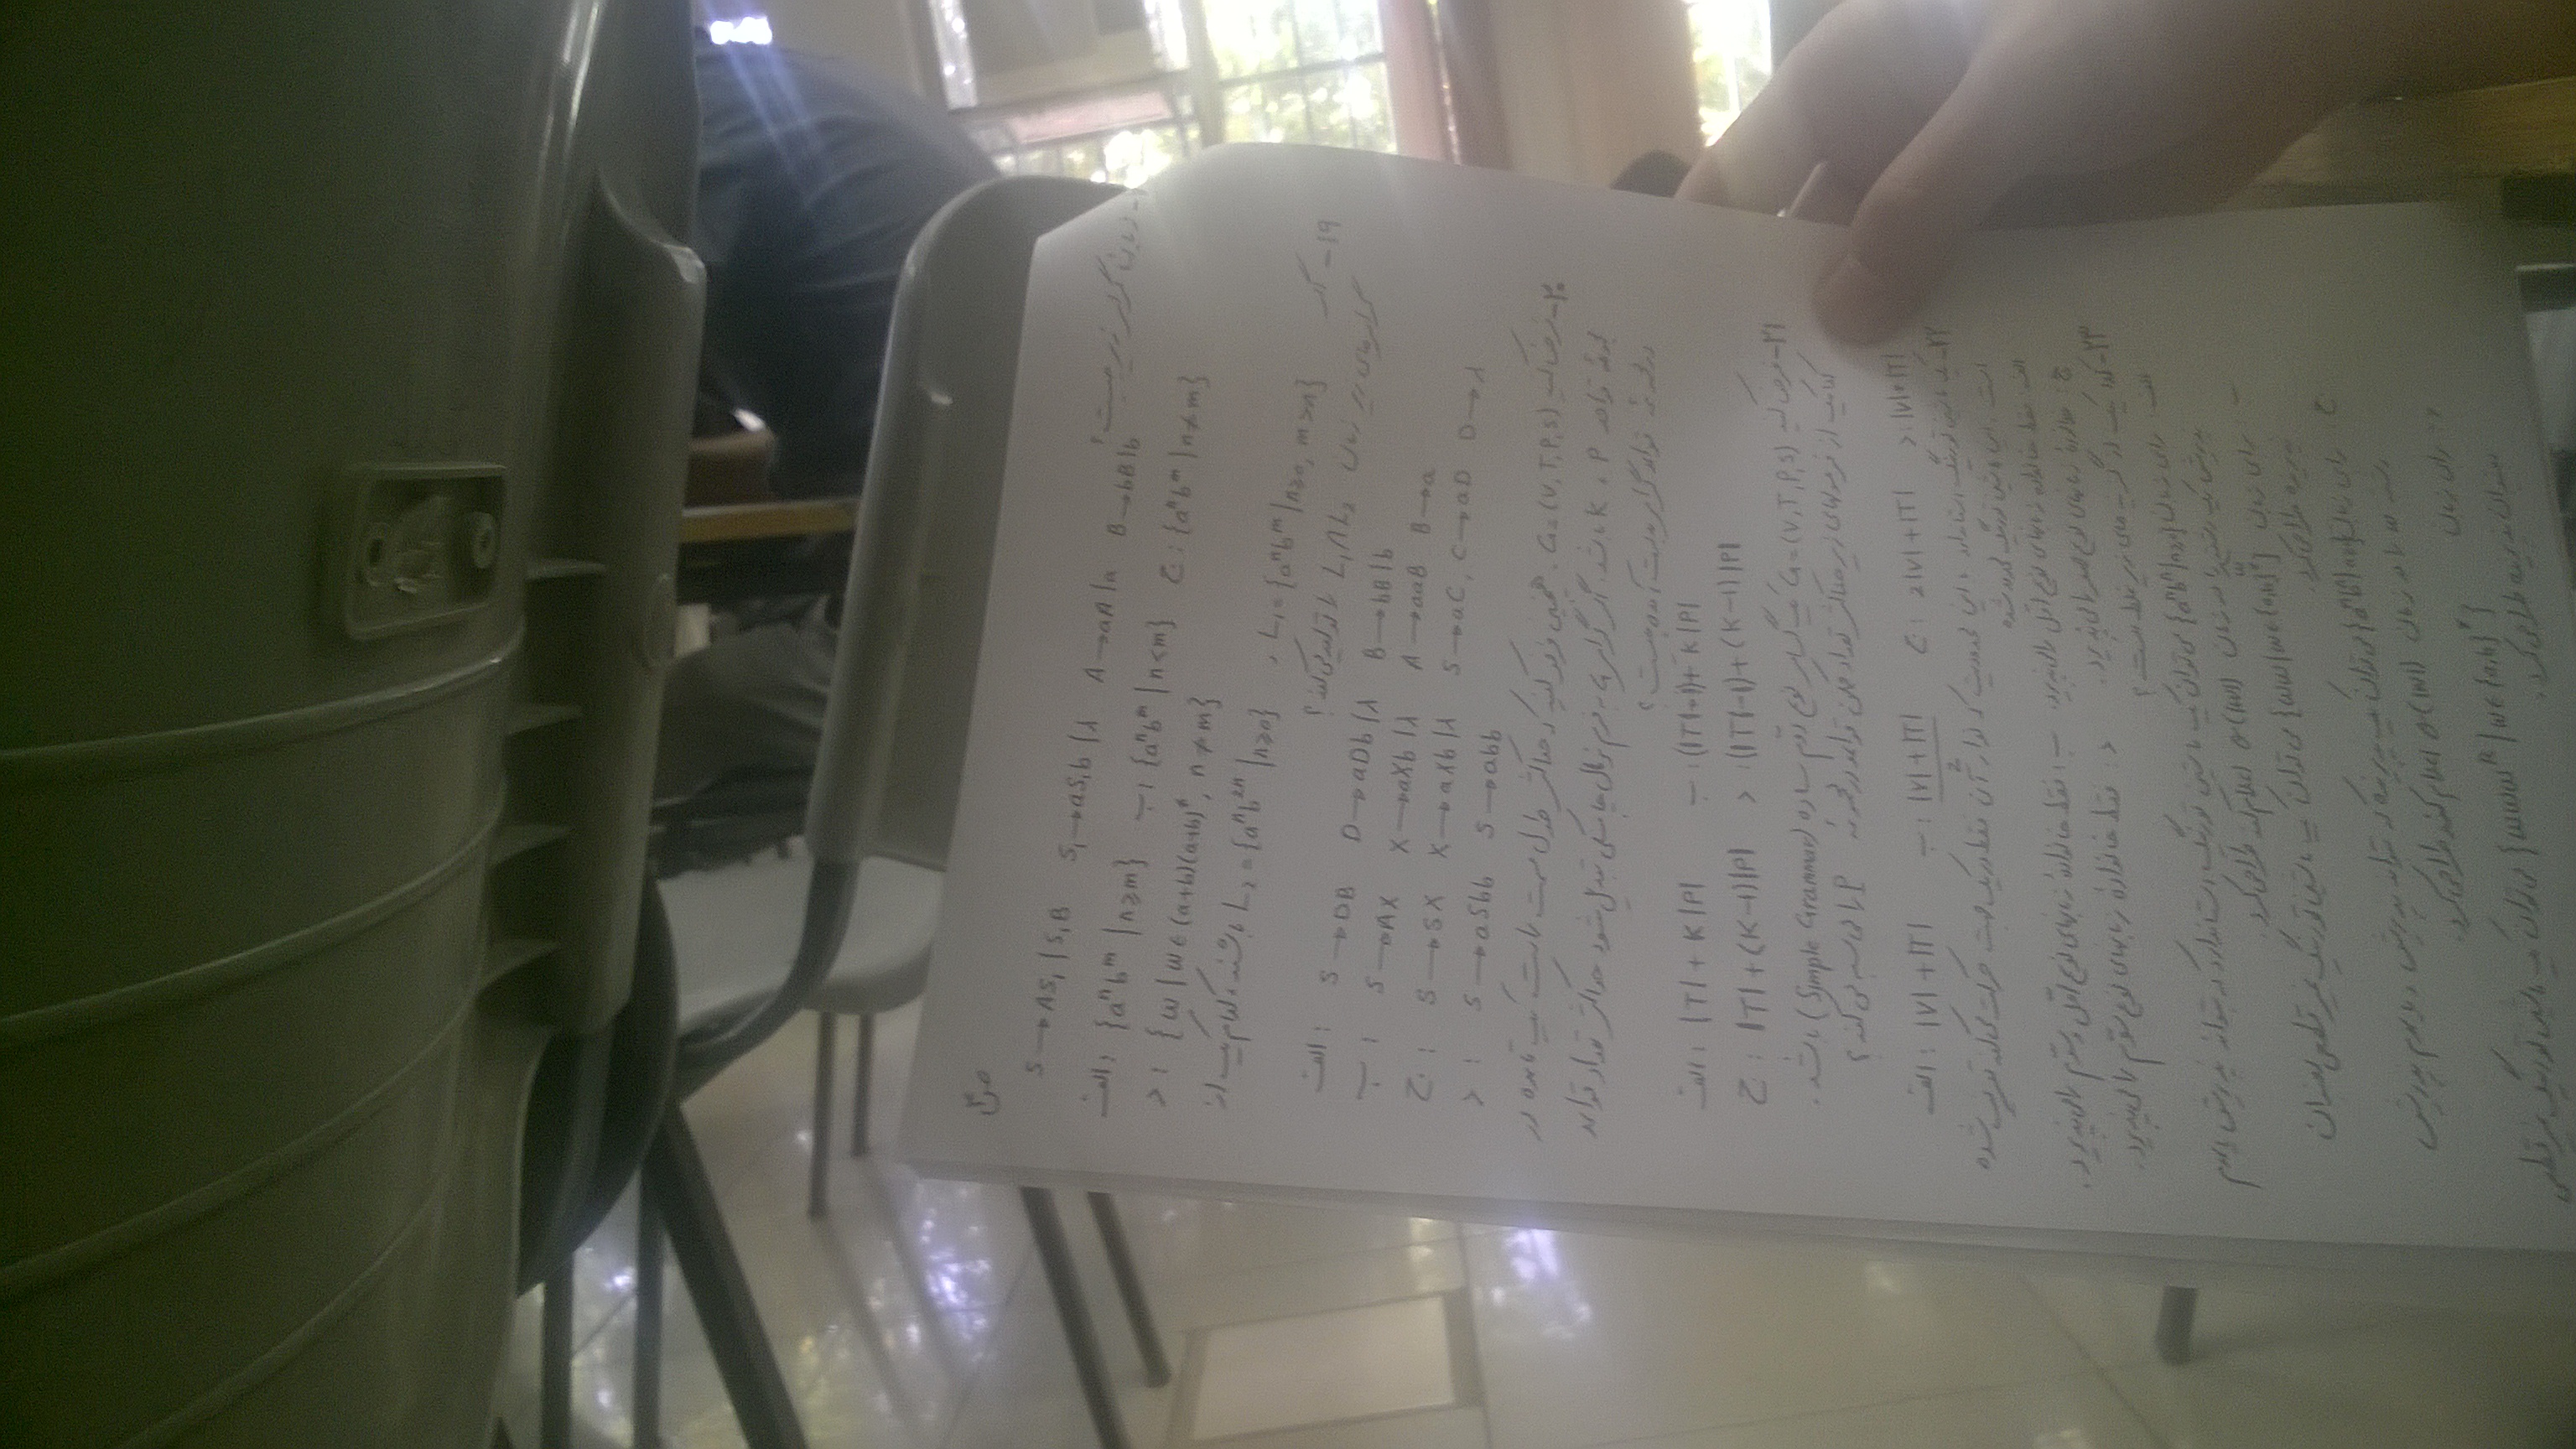 ص۳
زبان گرامر زیر چیست؟
S → AS₁ | S₁B   S₁ → aS₁b | λ   A → aA | a   B → bB | b
الف: {aⁿbᵐ | n≥m}   ب: {aⁿbᵐ | n<m}   ج: {aⁿbᵐ | n≠m}
د: {w | w ∈ (a+b)(a+b)*, n≠m}
۱۹- اگر L₁ = {aⁿbᵐ | n≥0, m>n} , L₂ = {aⁿb²ⁿ | n≥0} باشند، کدام یک از
گرامرهای زیر زبان L₁∩L₂ را تولید می‌کند؟
الف: S → DB   D → aDb | λ   B → bB | b
ب: S → AX   X → aXb | λ   A → aaB   B → a
ج: S → SX   X → aXb | λ   S → aC, C → aD   D → λ
د: S → aSbb   S → abb
۲۰- فرض کنید G = (V, T, P, S). همچنین فرض کنید که حداکثر طول سمت راست یک قاعده در
مجموعه قواعد P، K باشد. اگر گرامر G به فرم نرمال چامسکی تبدیل شود حداکثر تعداد قواعد
در مجموعه قواعد گرامر بدست آمده چیست؟
الف: |T| + K|P|   ب: (|T|-1) + K|P|
ج: |T| + (K-1)|P|   د: (|T|-1) + (K-1)|P|
۲۱- فرض کنید G = (V, T, P, S) یک گرامر نوع دوم ساده (Simple Grammar) باشد.
کدام یک از فرمولهای زیر حداکثر تعداد ممکن قواعد در مجموعه P را محاسبه می‌کند؟
الف: |V| + |T|   ب: (|V| + |T|)/2   ج: 2|V| + |T|   د: |V| * |T|
۲۲- یک ماشین تورینگ استاندارد با این محدودیت که نوار آن فقط در یک جهت حرکت می‌کند تعریف شده
است. این ماشین تورینگ محدود شده
الف: فقط خانواده زبانهای نوع اول را می‌پذیرد.   ب: فقط خانوادهٔ زبانهای نوع اول و سوم را می‌پذیرد.
ج: خانوادهٔ زبانهای نوع صفر را می‌پذیرد.   د: فقط خانوادهٔ زبانهای نوع سوم را می‌پذیرد.
۲۳- کدام یک از گزینه های زیر غلط است؟
الف: برای زبان {aⁿbⁿ | n≥0} می‌توان یک ماشین تورینگ استاندارد که بتواند پذیرش یا عدم
پذیرش یک رشته را در زمان اعلام کند طراحی کرد.
ب: برای زبان {ww | w∈{a,b}*} می‌توان یک ماشین تورینگ غیر قطعی بعنوان
پذیرنده طراحی کرد.
ج: برای زبان می‌توان یک پذیرنده که بتواند پذیرش و یا عدم پذیرش
رشته w را در زمان اعلام کند طراحی کرد.
د: برای زبان {wwwᴿ | w∈{a,b}*} می‌توان یک ماشین تورینگ غیر قطعی
بعنوان پذیرنده طراحی کرد.